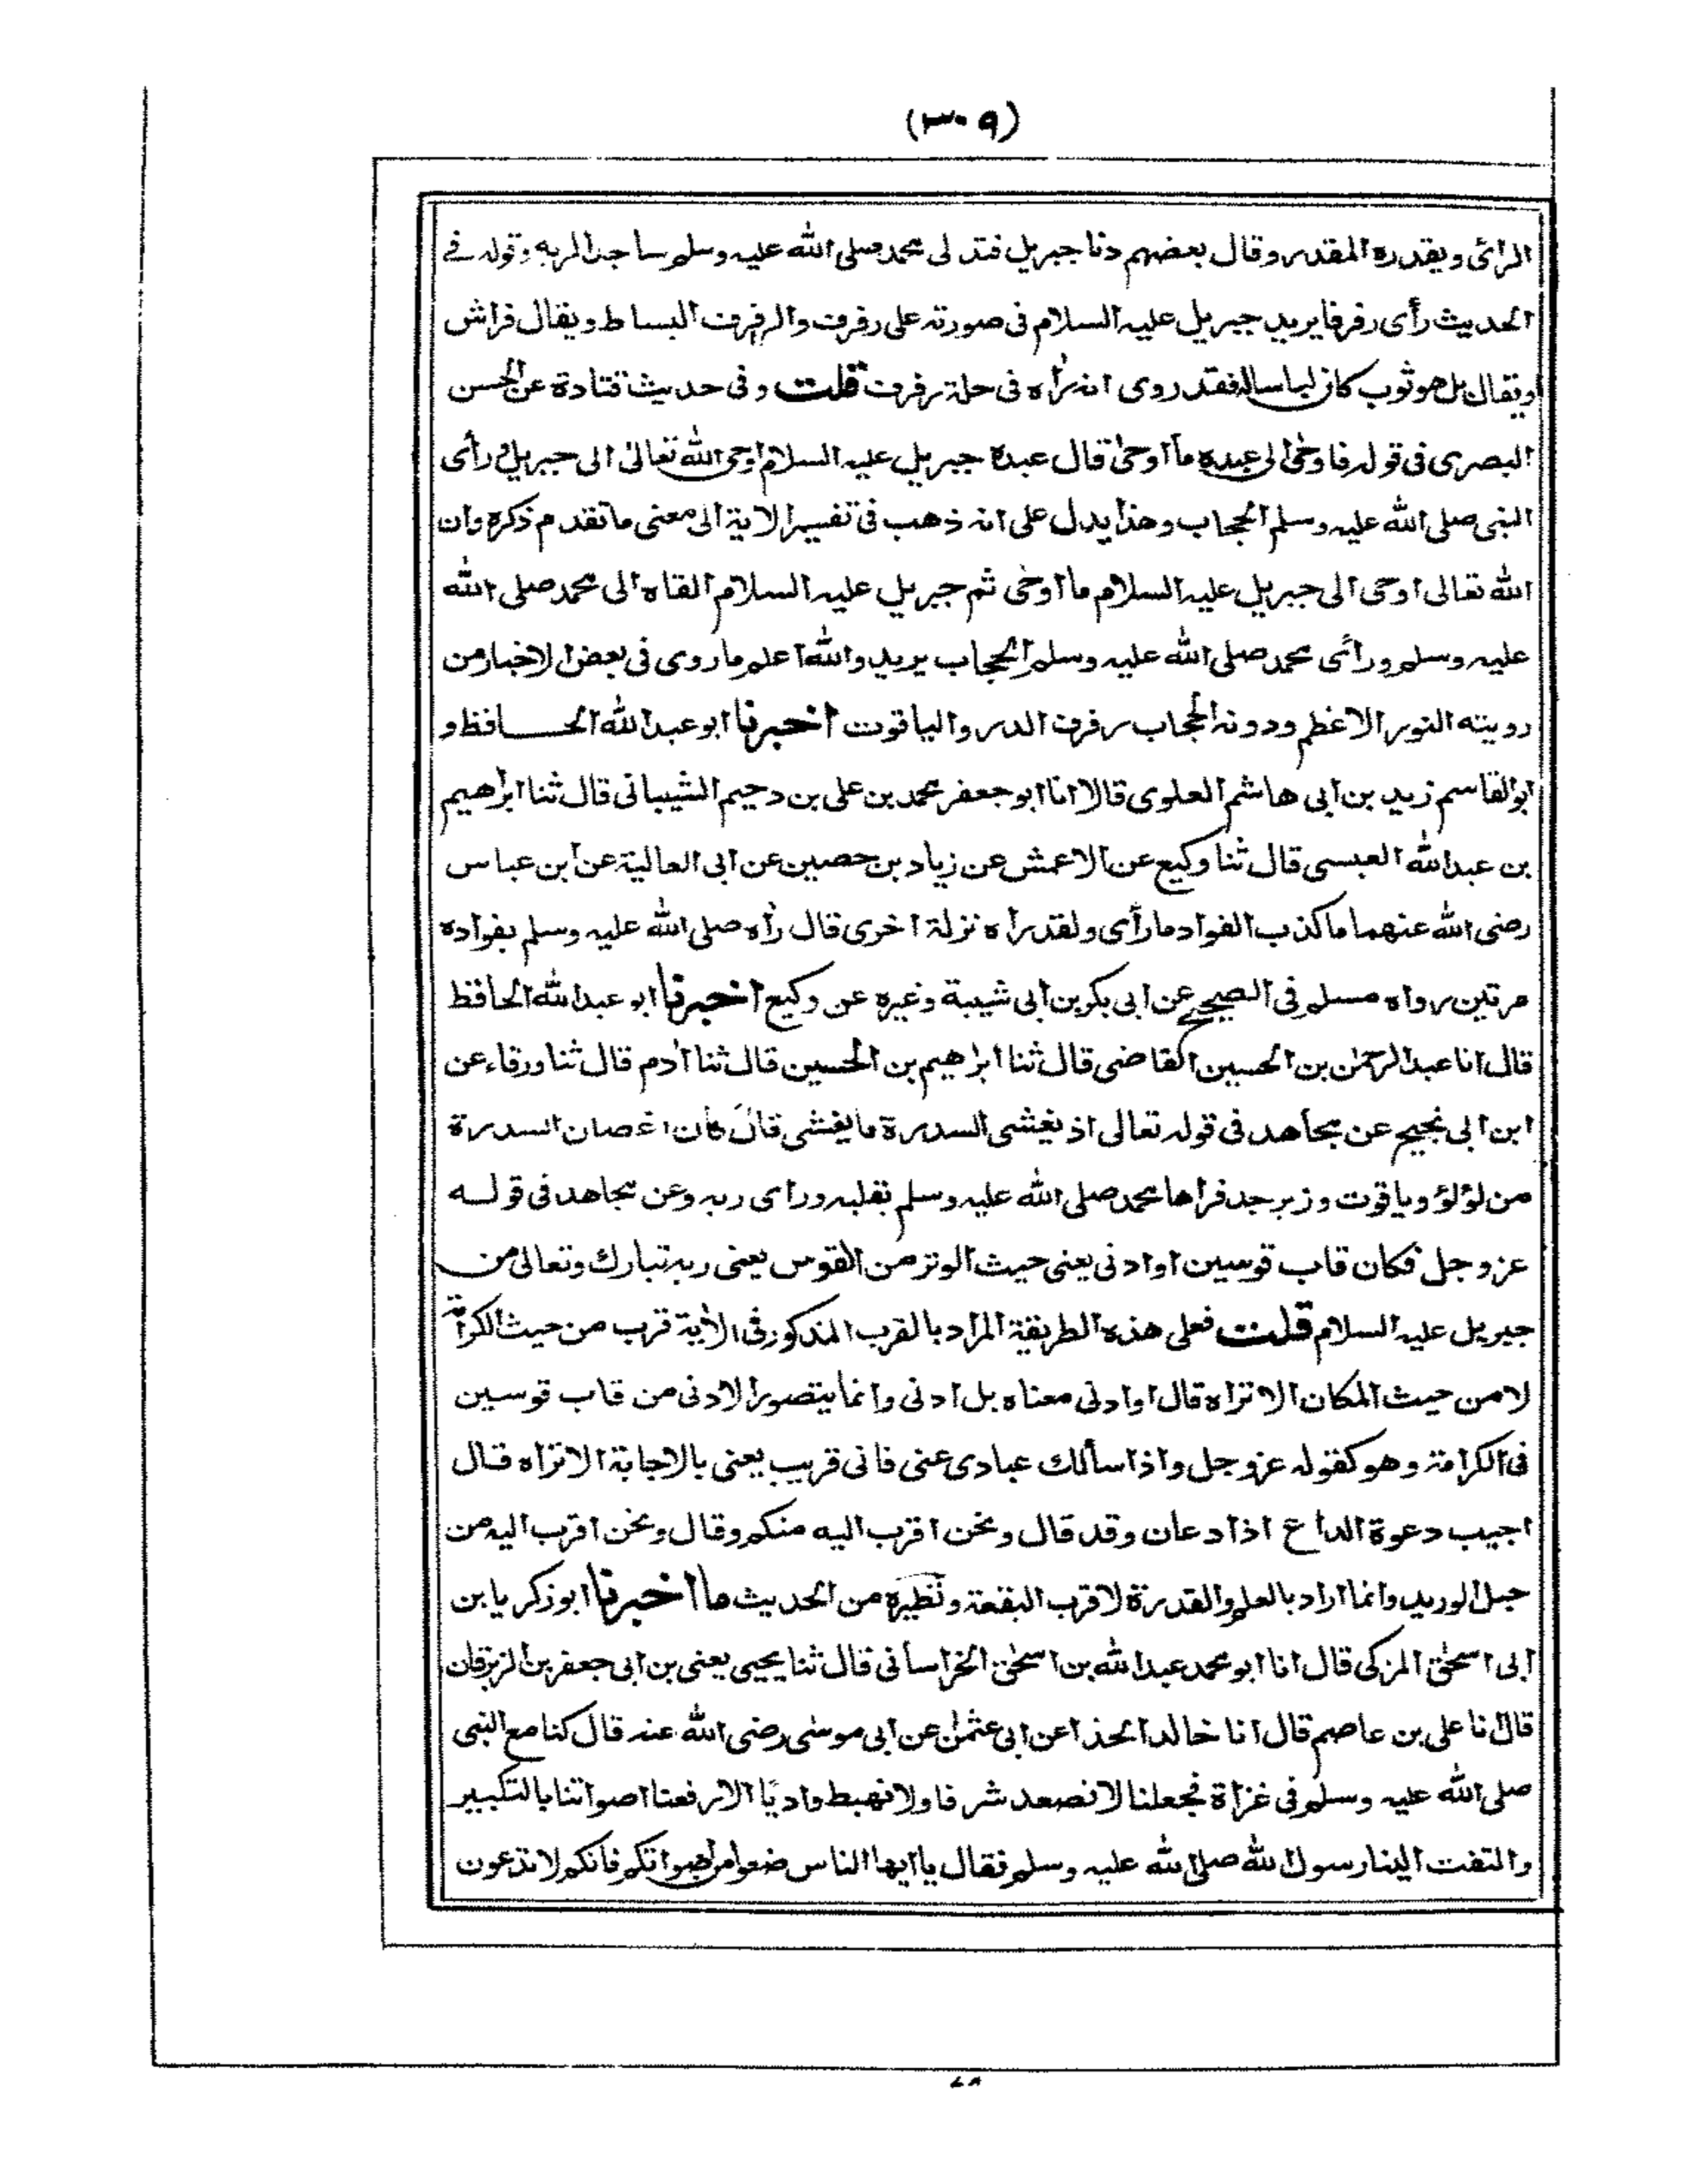 (٣٠٩)
الرائى ويقدره المقدر وقال بعضهم دنا جبريل فتدلى محمد صلى الله عليه وسلم ساجدا لربه وقوله فى
الحديث رأى رفرفا يريد جبريل عليه السلام فى صورته على رفرف والرفرف البساط ويقال فراش
ويقال بل هو ثوب كان لباسا له فقد روى انه رأه فى حلة رفرف قلت وفى حديث قتادة عن الحسن
البصرى فى قوله فاوحى الى عبده ما اوحى قال عبده جبريل عليه السلام اوحى الله تعالى الى جبريل ورأى
النبى صلى الله عليه وسلم الحجاب وهذا يدل على انه ذهب فى تفسير الاية الى معنى ما تقدم ذكره وان
الله تعالى اوحى الى جبريل عليه السلام ما اوحى ثم جبريل عليه السلام القاه الى محمد صلى الله
عليه وسلم ورأى محمد صلى الله عليه وسلم الحجاب يريد والله اعلم ما روى فى بعض الاخبار من
رويته النور الاعظم ودونه الحجاب رفرف الدر والياقوت اخبرنا ابو عبد الله الحافظ و
ابو القاسم زيد بن ابى هاشم العلوى قالا انا ابو جعفر محمد بن على بن دحيم الشيبانى قال ثنا ابراهيم
بن عبد الله العبسى قال ثنا وكيع عن الاعمش عن زياد بن حصين عن ابى العالية عن ابن عباس
رضى الله عنهما ما كذب الفواد ما رأى ولقد رأه نزلة اخرى قال رأه صلى الله عليه وسلم بفواده
مرتين رواه مسلم فى الصحيح عن ابى بكر بن ابى شيبة وغيره عن وكيع اخبرنا ابو عبد الله الحافظ
قال انا عبد الرحمن بن الحسين القاضى قال ثنا ابراهيم بن الحسين قال ثنا أدم قال ثنا ورقاء عن
ابن ابى نجيح عن مجاهد فى قوله تعالى اذ يغشى السدرة ما يغشى قال كان اغصان السدرة
من لؤلؤ وياقوت وزبرجد فرأها محمد صلى الله عليه وسلم بقلبه ورأى ربه وعن مجاهد فى قوله
عز وجل فكان قاب قوسين او ادنى يعنى حيث الوتر من القوس يعنى ربه تبارك وتعالى من
جبريل عليه السلام قلت فعلى هذه الطريقة المراد بالقرب المذكور فى الأية قرب من حيث الكرامة
لا من حيث المكان الا تراه قال او ادنى معناه بل ادنى وانما يتصور الادنى من قاب قوسين
فى الكرامة وهو كقوله عز وجل واذا سألك عبادى عنى فانى قريب يعنى بالاجابة الا تراه قال
اجيب دعوة الداع اذا دعان وقد قال ونحن اقرب اليه منكم وقال ونحن اقرب اليه من
حبل الوريد وانما اراد بالعلم والقدرة لا قرب البقعة ونظيره من الحديث ما اخبرنا ابو زكريا بن
ابى اسحق المزكى قال انا ابو محمد عبد الله بن اسحق الخراسانى قال ثنا يحيى يعنى بن ابى جعفر بن الزبرقان
قال نا على بن عاصم قال انا خالد الحذا عن ابى عثمن عن ابى موسى رضى الله عنه قال كنا مع النبى
صلى الله عليه وسلم فى غزاة فجعلنا لا نصعد شرفا ولا نهبط واديا الا رفعنا اصواتنا بالتكبير
والتفت الينا رسول الله صلى الله عليه وسلم فقال يا ايها الناس ضعوا من اصواتكم فانكم لا تدعون